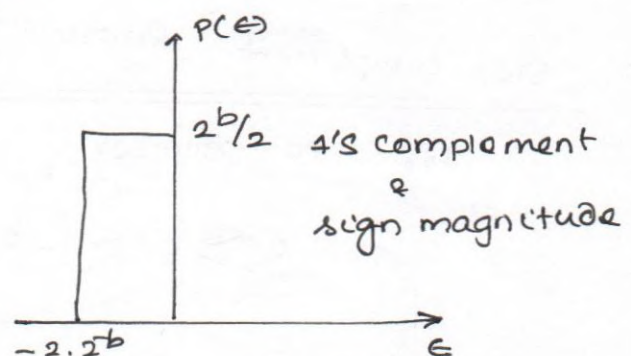 P(∈)
2^b/2 4's complement
&
sign magnitude
-2.2^-b ∈